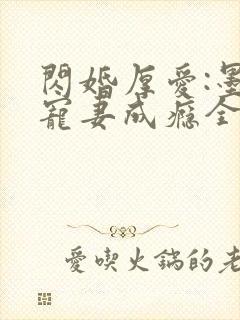 閃婚厚愛:墨
寵妻成癮全
愛喫火鍋的老